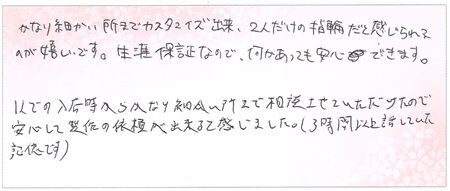 かなり細かい所までカスタマイズ出来、2人だけの指輪だと感じられる
のが嬉しいです。生涯保証なので、何かあっても安心できます。
入店時からかなり細かい所まで相談させていただけたので
安心して製作の依頼が出来ると感じました。(3時間以上話していた
記憶です)